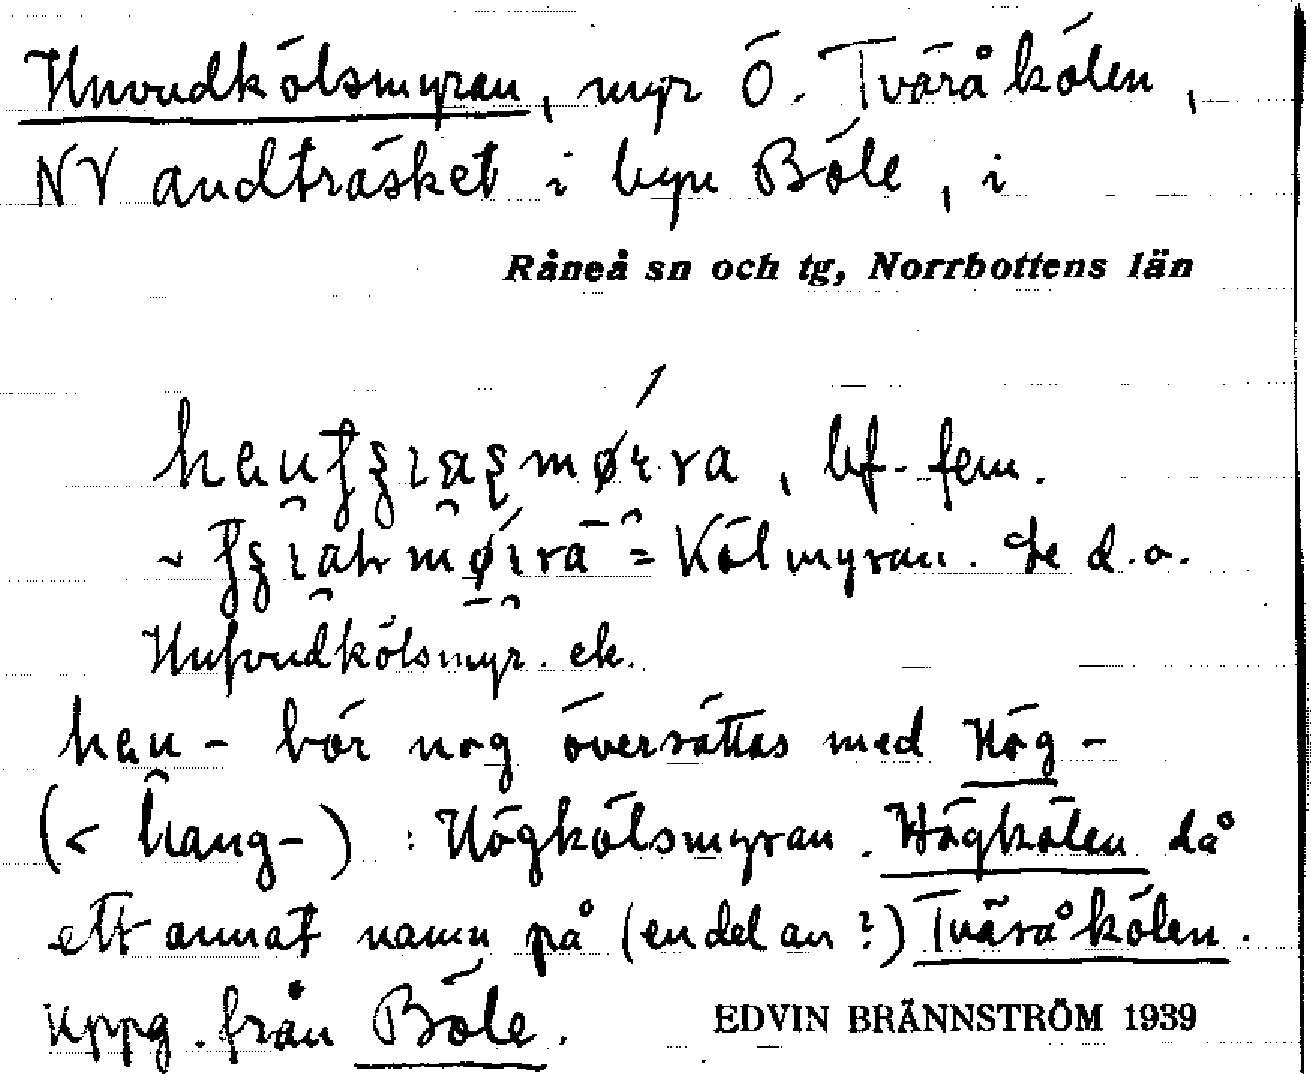 Huvudkölsmyran, myr Ö. Tväråkölen,
NV andträsket i byn Böle, i
Råneå sn och tg, Norrbottens län
, bf. fem.
= Kölmyran. Se d.o.
Hufvudkölsmyr. ek.
hau- bör nog översättas med Hög-
(< haug-) : Högkölsmyran. Högkölen då
ett annat namn på (en del av?) Tväråkölen.
Uppg. från Böle.
EDVIN BRÄNNSTRÖM 1939